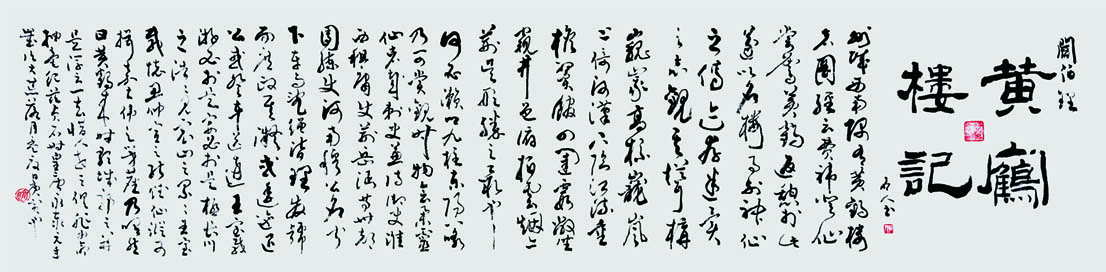 閻伯理
黄鶴
樓記
州城西南隅有黄鶴樓
者圖經云費禕登仙
嘗駕黄鶴返憩於此
遂以名樓事列神仙
之傳迹存述異
之志觀其聳構
巍峨高標巃嵸
上倚河漢下臨江流重
檐翼館四闥霞敞坐
窺井邑俯拍雲煙亦
荆吴形勝之最也
何必瀨鄉九柱東陽八詠
乃可賞觀時物會集靈
仙者哉刺史兼侍御史淮
西租庸使荆岳沔等州都
團練使河南穆公名寧
下車而亂繩皆理發號
而庶政其凝或逶迤退
公或登車送遠
游必於是宴必於是極長川
之浩浩見衆山之累累王室
載懷思仲宣之能賦仙蹤可
揖嘉叔偉之芳塵乃喟然
曰黄鶴來時歌城郭之并
是浮雲一去惜人世之俱非有命
抽毫紀兹貞石時皇唐永泰元年
歲次大荒落月孟夏日庚寅也